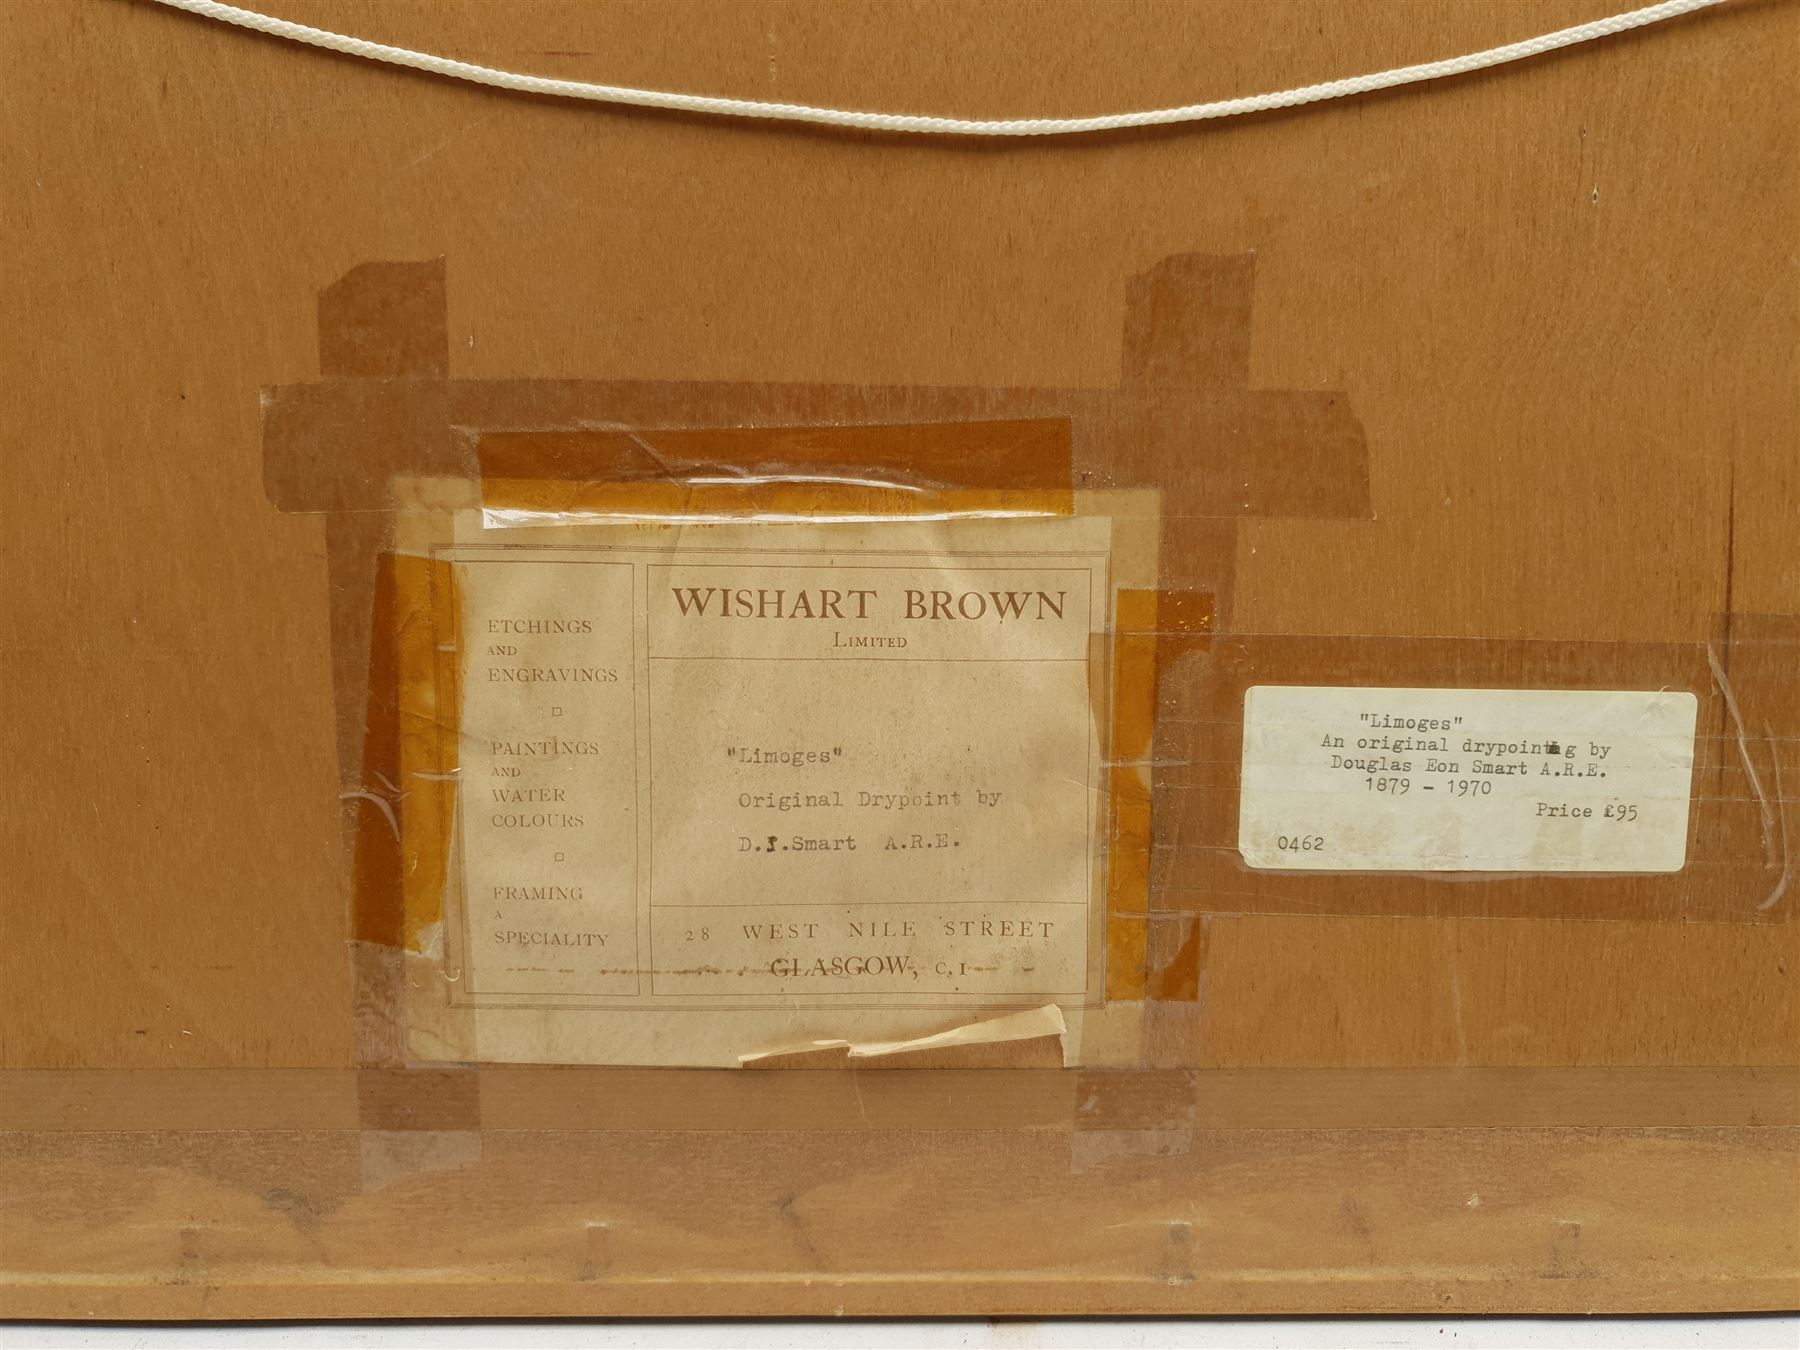 ETCHINGS
AND
ENGRAVINGS
PAINTINGS
AND
WATER
COLOURS
FRAMING
A
SPECIALITY
WISHART BROWN
LIMITED
"Limoges"
Original Drypoint by
D.I.Smart A.R.E.
28 WEST NILE STREET
GLASGOW, C.1
"Limoges"
An original drypointg by
Douglas Eon Smart A.R.E.
1879 - 1970
Price £95
0462